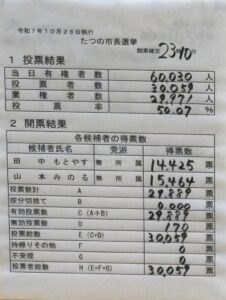 令和7年10月26日執行
たつの市長選挙
開票確定 23時10分
1 投票結果
当日有権者数 60,030 人
投票者数 30,059 人
棄権者数 29,971 人
投票率 50.07 %
2 開票結果
各候補者の得票数
候補者氏名 党派 得票数
田中もとやす 無所属 14,425 票
山本みのる 無所属 15,464 票
投票数計 A 29,889 票
按分切捨て B 0.000 票
有効投票数 C (A+B) 29,889 票
無効投票数 D 170 票
投票総数 E (C+D) 30,059 票
持帰りその他 F 0 票
不受理 G 0 票
投票者総数 H (E+F+G) 30,059 票